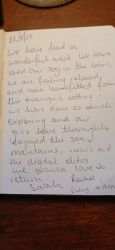 We have had a
wonderful week. We have
loved our stay in the cabin.
We are feeling relaxed
and have benefitted from
the tranquil setting.
We have done so much
exploring and our
girls have thoroughly
enjoyed the sea,
mountains, views and
the digital detox.
We would love to
return.
Sarah Rachel
Lucy +